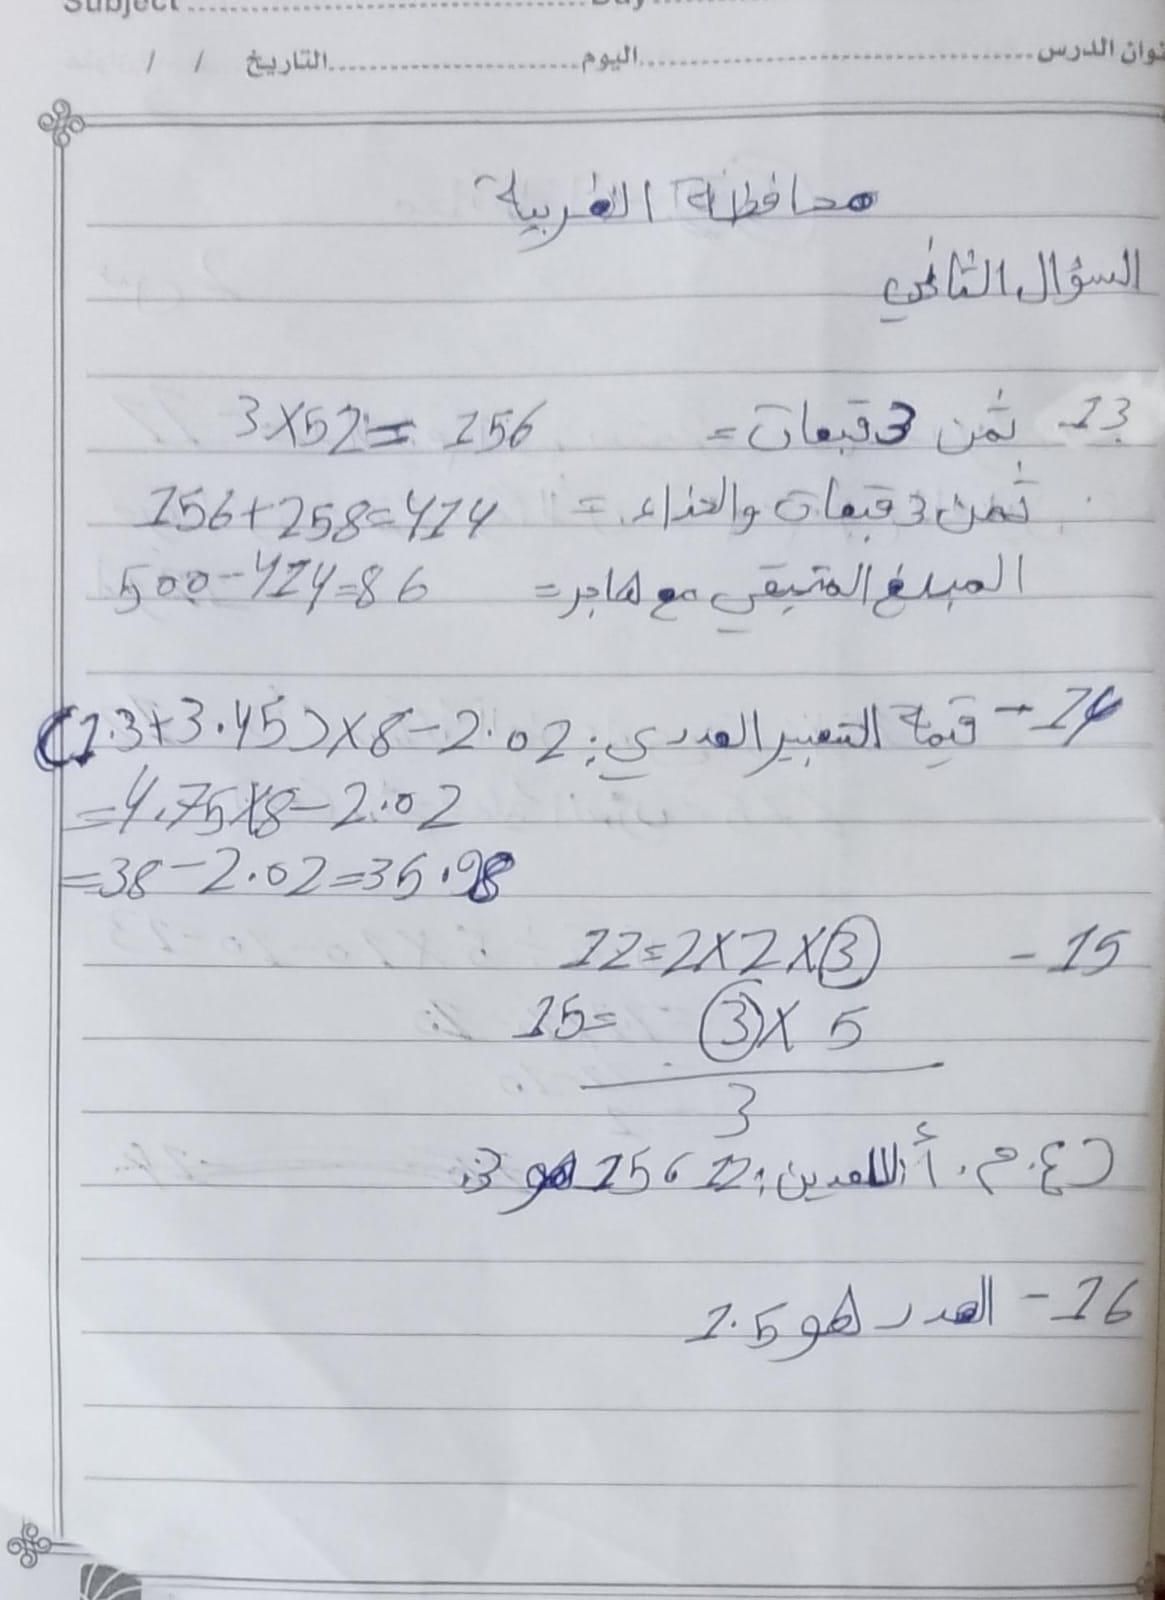 Subject ........................ Day
نوان الدرس........................اليوم........................التاريخ / /
محافظة الغربية
السؤال الثاني
13- ثمن 3 قبعات = 3×52= 156
ثمن 3 قبعات والحذاء = 156+258=414
المبلغ المتبقي مع هاجر= 500-414=86
14- قيمة التعبير العددي: (1.3+3.45)×8-2.02
=4.75×8-2.02
=38-2.02=35.98
15- 12=2×2×3
15= 3×5
3
(ع.م.أ) للعددين: 12، 15 هو 3.
16- العدد هو 1.5